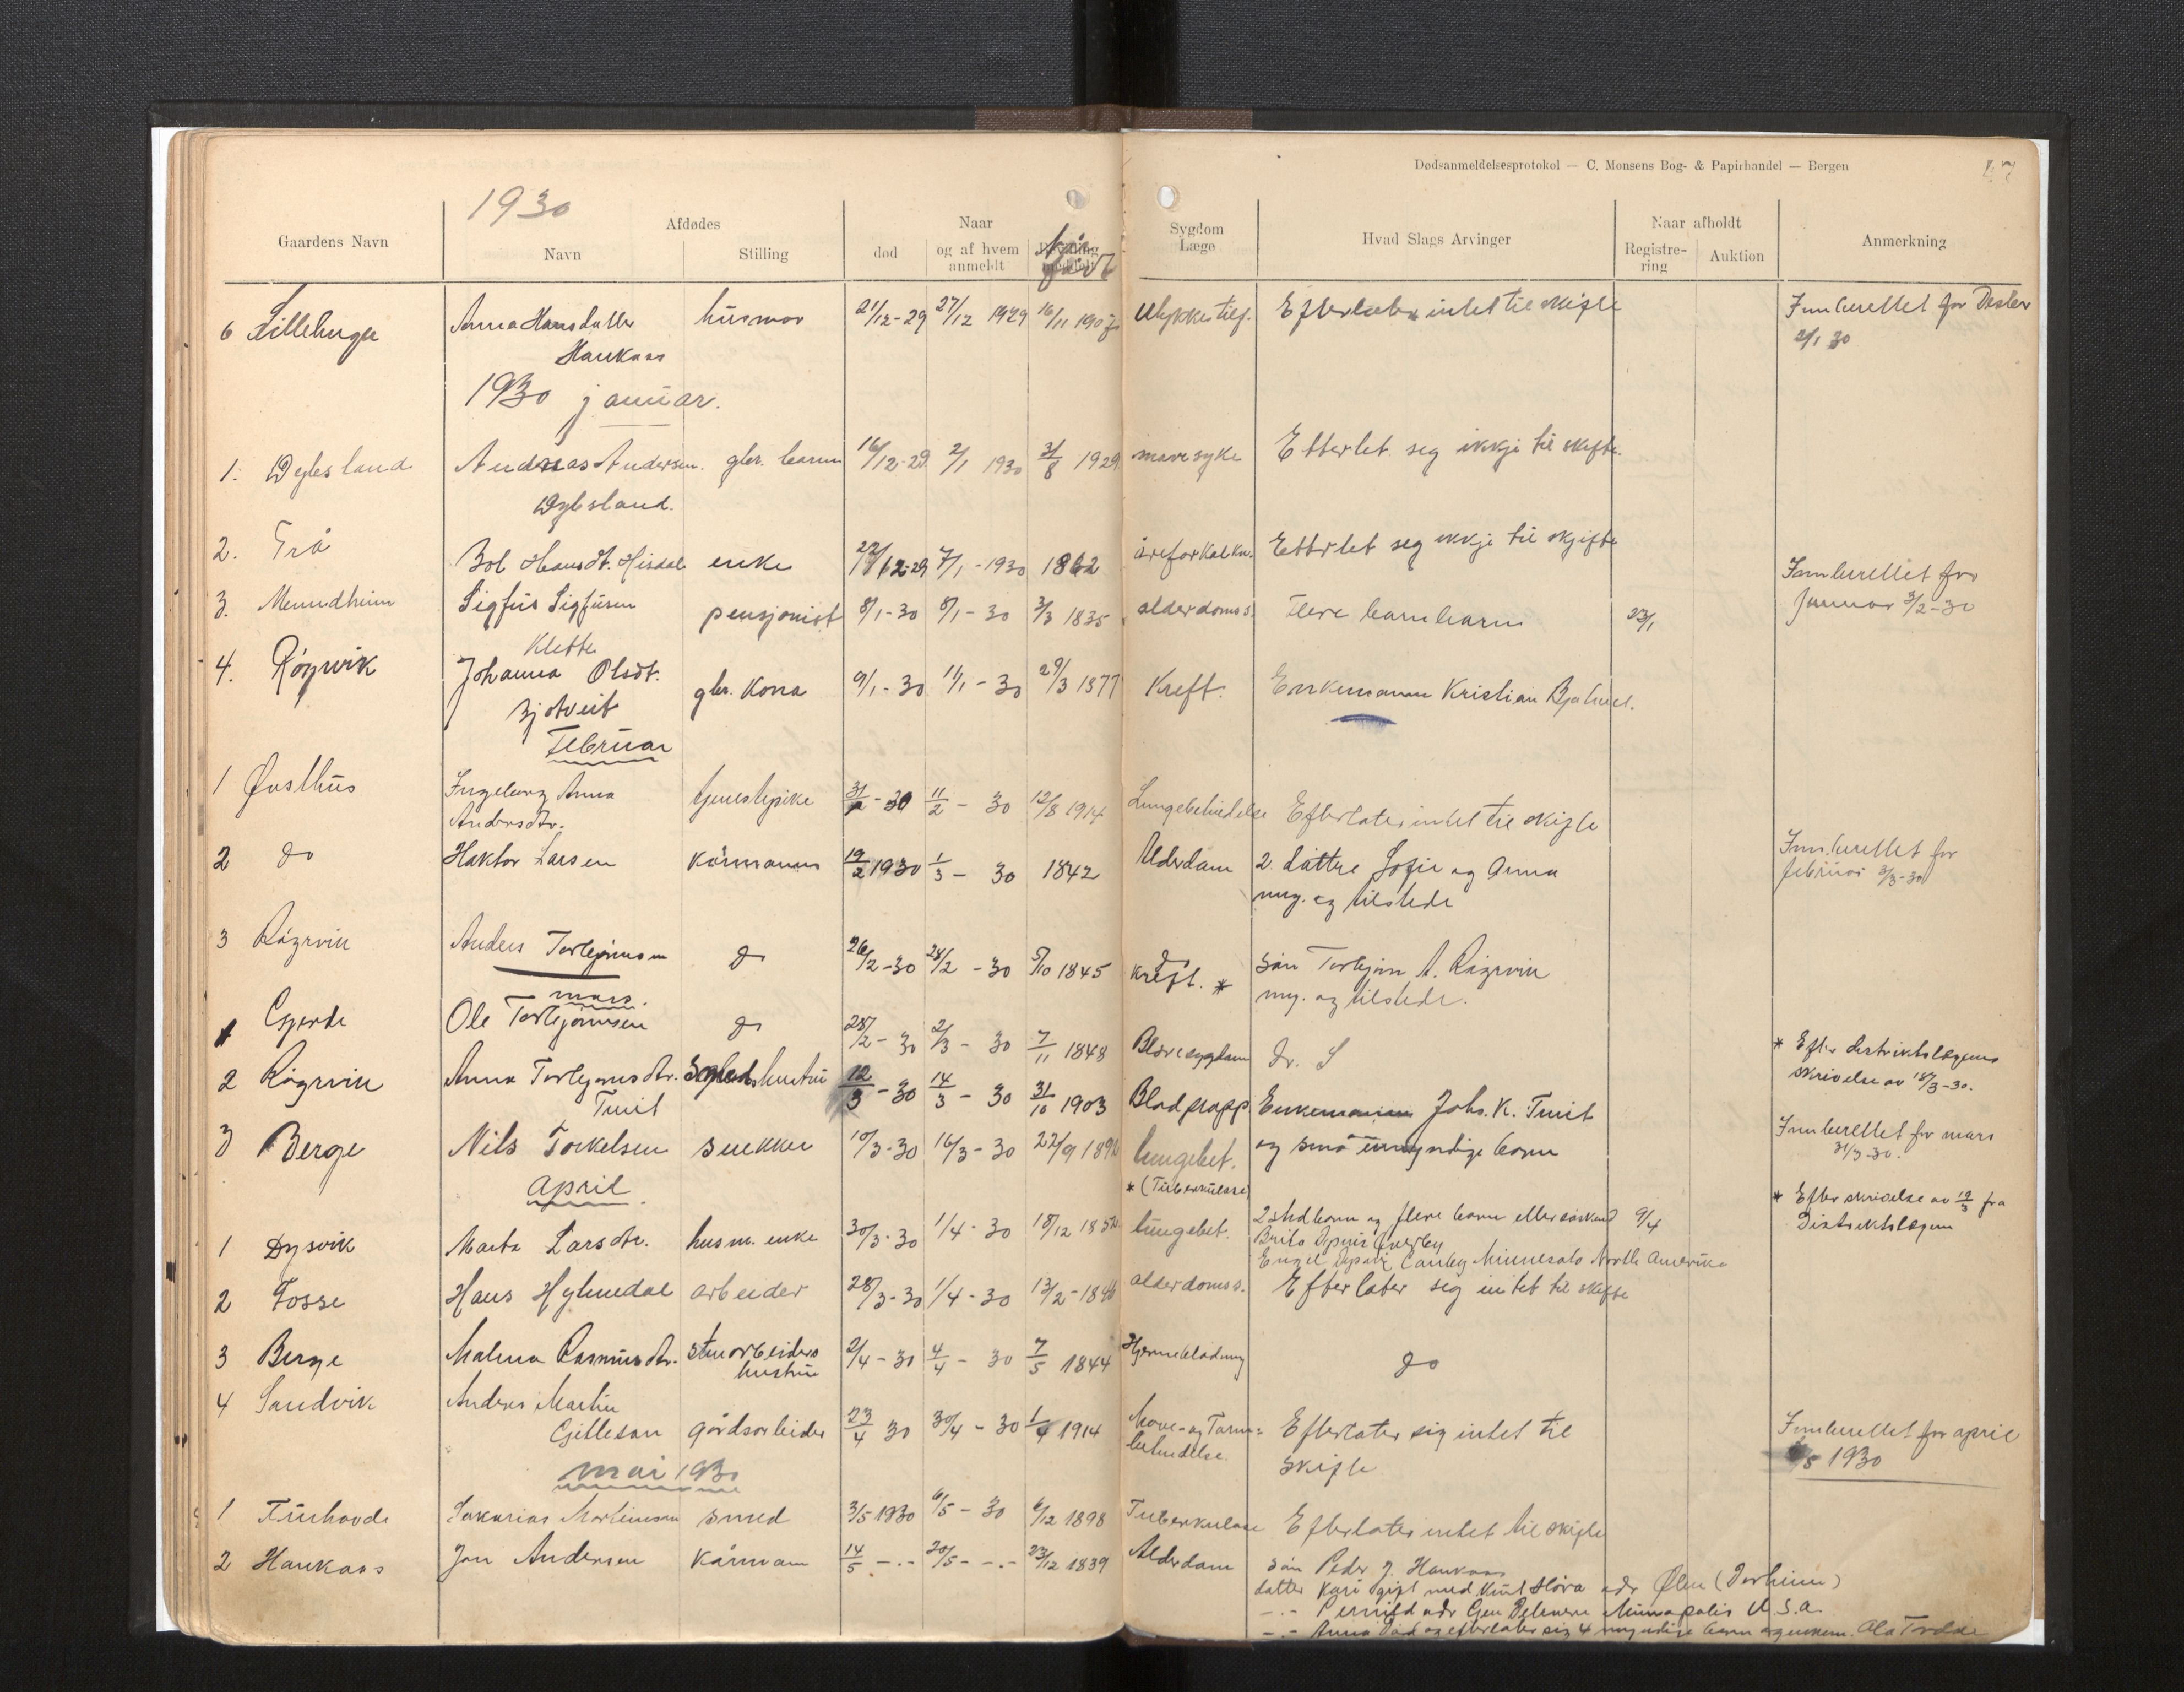 Dødsanmeldelsesprotokol — C. Monsens Bog- & Papirhandel — Bergen
47
1930
Gaardens Navn
Afdødes
Navn
Stilling
Naar
død
og af hvem anmeldt
født
Sygdom
Læge
Hvad Slags Arvinger
Naar afholdt
Registre-ring
Auktion
Anmerkning
6 Lillehuga Anna Hansdatter husmor 21/12-29 27/12 1929 16/11 190 Ulykkestilf. Efterlater intet til skifte Innberettet for Desbr
Haukaas 2/1 30
1930 januar.
1. Dybsland Andreas Andersen gbr. barn 16/12-29 2/1 1930 31/8 1929 mavesyke Etterlet seg ikkje til skifte.
Dybsland.
2. Trå Bol Hansdt. Hisdal enke 12-29 7/1-1930 1862 åreforkalkn. Etterlet seg ikkje til skifte Innberettet for
3. Mundheim Sigfus Sigfusen pensjonist 8/1-30 8/1-30 3/3 1835 alderdoms s. Flere barnbarn 23/1 Januar 3/2-30
Klette
4. Røgrvik Johanna Olsdt. gbr. Kona 9/1-30 11/1-30 29/3 1877 Kreft. Enkemann Kristian Bjotveit.
Bjotveit
Februar
1 Østhus Ingeborg Anna tjenestepike 31/-30 11/2-30 12/8 1914 Lungebetendelse Efterlater intet til skifte
Andersdtr.
2 do Haktor Larsen Kårmann 19/2 1930 1/3-30 1842 Alderdom 2 døttre Sofie og Anna Innberettet for
myg. og tilstede februar 3/3-30
3 Røgrvik Anders Torbjørnsen do 26/2-30 28/2-30 5/10 1845 do søn Torbjørn A. Røgrvik
kreft. * myg. og tilstede.
mars.
1 Gjerde Ole Torbjørnsen do 28/2-30 2/3-30 7/11 1848 Blæresygdom * Efter distriktslægens
skrivelse av 18/3-30.
2 Røgrvik Anna Torbjørnsdtr. hustru 12/3-30 14/3-30 31/10 1903 Blodpropp Enkemann Johs. K. Tveit
Tveit og små umyndige barn
3 Berge Nils Torkelsen snekker 10/3-30 16/3-30 22/9 189 lungebet. Innberettet for mars
31/3-30.
* (Tuberkulose)
April * Efter skrivelse av 19/3 fra
Distriktslægen
1 Dysvik Marta Larsdtr. husm. enke 30/3-30 1/4-30 18/12 185 lungebet. 2 stedbarn og flere barn etter søsken 9/4
Brita Dysvik
Engel Dysvik Canby Minnesota North Amerika
2 Fosse Hans Hylmedal arbeider 28/3-30 1/4-30 13/2-184 alderdoms s. Efterlater sig intet til skifte
3 Berge Malena Rasmusdtr. stenarbeiders 2/4-30 4/4-30 7/5 1844 Hjerneblødning do
hustru
4 Sandvik Anders Martin
Gjillesen gårdsarbeider 23/4 30 30/4-30 1/4 1914 Mave- og Tarm- Efterlater sig intet til Innberettet for april
betendelse. skifte /5 1930
mai 1930
1 Furhovde Sakarias Martinsen smed 3/5 1930 6/5-30 6/12 1898 Tuberkulose Efterlater intet til skifte
2 Haukaas Jon Andersen Kårmann 14/5 -.- 20/5 -.- 23/12 1839 Alderdom søn Peder J. Haukaas
datter Kari gift med Knut Hóra adr Ølen (Dorheim)
-.- Pernild adr Gen Delevere Minnapolis U.S.A.
-.- Anna død og efterlater sig 4 myndige barn og enkem. Ola Trodde